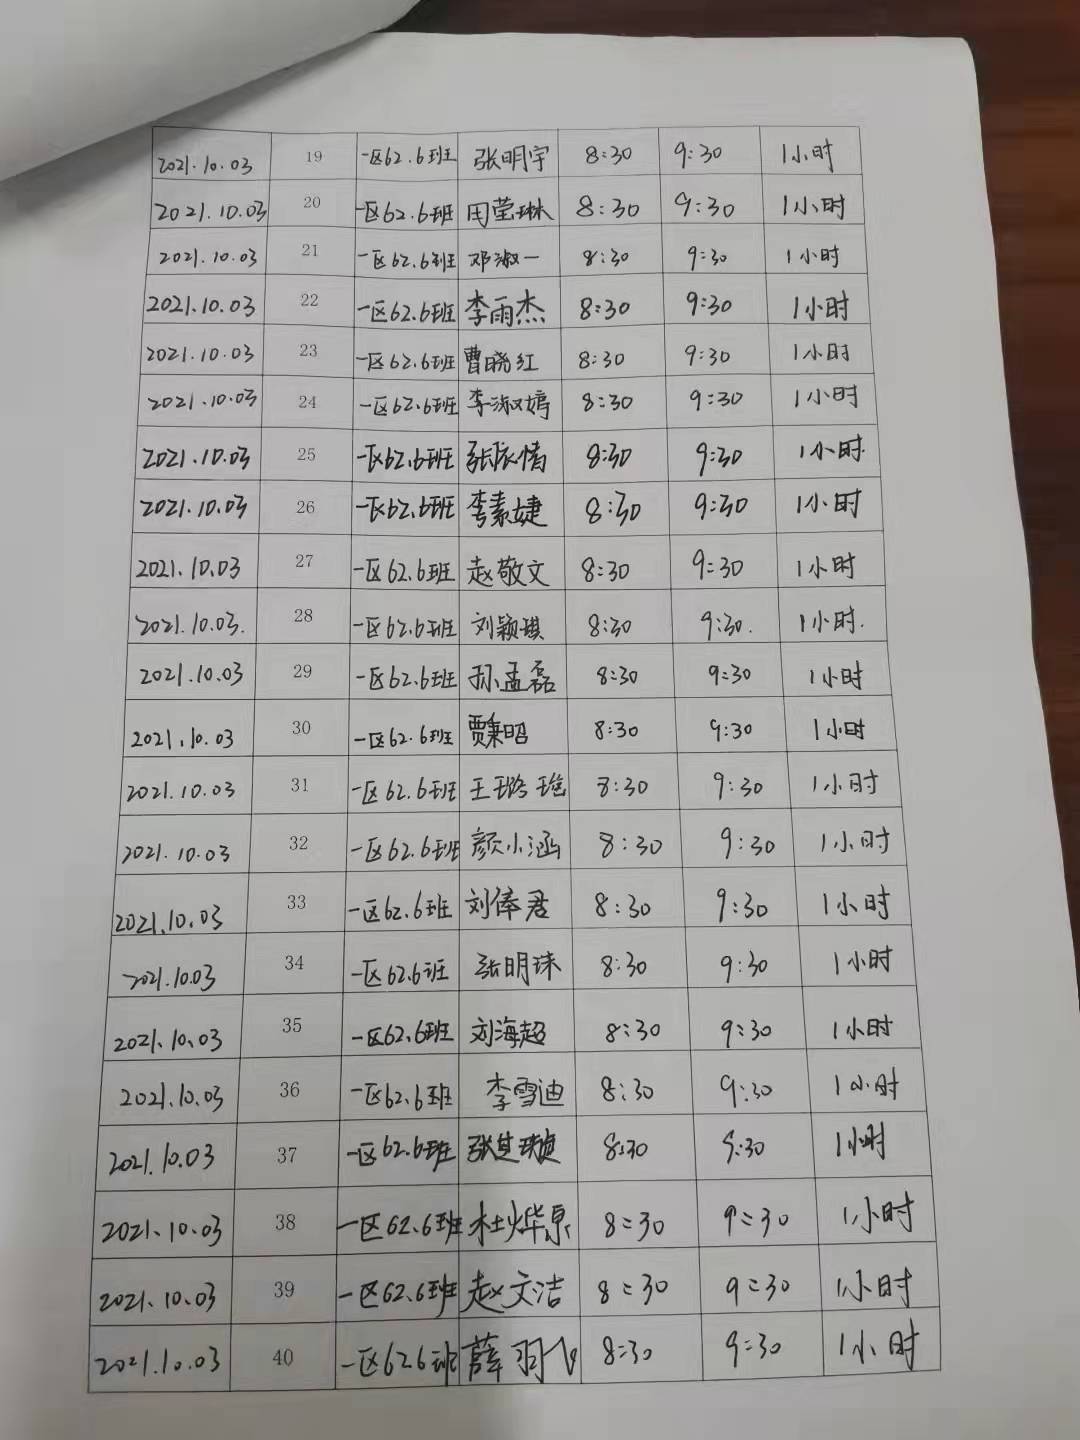 2021.10.03 19 一区62.6班 张明宇 8:30 9:30 1小时
2021.10.03 20 一区62.6班 周莹琳 8:30 9:30 1小时
2021.10.03 21 一区62.6班 邓淑一 8:30 9:30 1小时
2021.10.03 22 一区62.6班 李雨杰 8:30 9:30 1小时
2021.10.03 23 一区62.6班 曹晓红 8:30 9:30 1小时
2021.10.03 24 一区62.6班 李淑婷 8:30 9:30 1小时
2021.10.03 25 一区62.6班 张依情 8:30 9:30 1小时.
2021.10.03 26 一区62.6班 李素婕 8:30 9:30 1小时
2021.10.03 27 一区62.6班 赵敬文 8:30 9:30 1小时
2021.10.03. 28 一区62.6班 刘颖琪 8:30 9:30. 1小时.
2021.10.03 29 一区62.6班 孙孟磊 8:30 9:30 1小时
2021.10.03 30 一区62.6班 贾秉昭 8:30 9:30 1小时
2021.10.03 31 一区62.6班 王璐瑶 8:30 9:30 1小时
2021.10.03 32 一区62.6班 颜小涵 8:30 9:30 1小时
2021.10.03 33 一区62.6班 刘俸君 8:30 9:30 1小时
2021.10.03 34 一区62.6班 张明珠 8:30 9:30 1小时
2021.10.03 35 一区62.6班 刘海超 8:30 9:30 1小时
2021.10.03 36 一区62.6班 李雪迪 8:30 9:30 1小时
2021.10.03 37 一区62.6班 8:30 9:30 1小时
2021.10.03 38 一区62.6班 杜烨原 8:30 9:30 1小时
2021.10.03 39 一区62.6班 赵文洁 8:30 9:30 1小时
2021.10.03 40 一区626班 薛羽飞 8:30 9:30 1小时